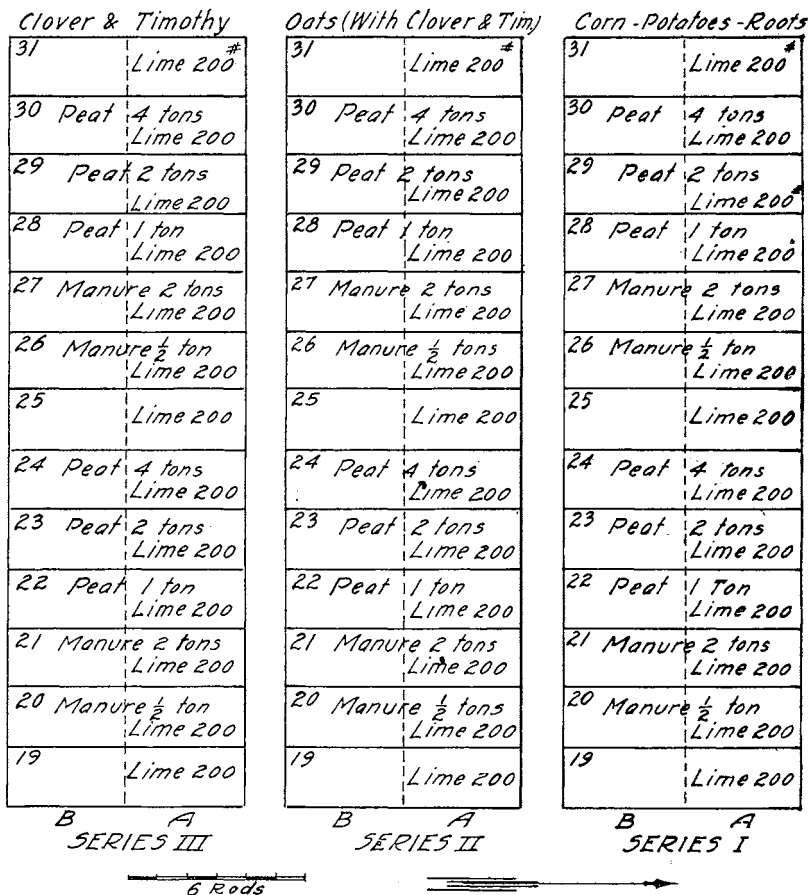 Clover & Timothy
31 Lime 200#
30 Peat 4 tons
Lime 200
29 Peat 2 tons
Lime 200
28 Peat 1 ton
Lime 200
27 Manure 2 tons
Lime 200
26 Manure 1/2 ton
Lime 200
25 Lime 200
24 Peat 4 tons
Lime 200
23 Peat 2 tons
Lime 200
22 Peat 1 ton
Lime 200
21 Manure 2 tons
Lime 200
20 Manure 1/2 ton
Lime 200
19 Lime 200
B A
SERIES III
Oats (With Clover & Tim.)
31 Lime 200#
30 Peat 4 tons
Lime 200
29 Peat 2 tons
Lime 200
28 Peat 1 ton
Lime 200
27 Manure 2 tons
Lime 200
26 Manure 1/2 tons
Lime 200
25 Lime 200
24 Peat 4 tons
Lime 200
23 Peat 2 tons
Lime 200
22 Peat 1 ton
Lime 200
21 Manure 2 tons
Lime 200
20 Manure 1/2 tons
Lime 200
19 Lime 200
B A
SERIES II
Corn - Potatoes - Roots
31 Lime 200#
30 Peat 4 tons
Lime 200
29 Peat 2 tons
Lime 200
28 Peat 1 ton
Lime 200
27 Manure 2 tons
Lime 200
26 Manure 1/2 ton
Lime 200
25 Lime 200
24 Peat 4 tons
Lime 200
23 Peat 2 tons
Lime 200
22 Peat 1 Ton
Lime 200
21 Manure 2 tons
Lime 200
20 Manure 1/2 ton
Lime 200
19 Lime 200
B A
SERIES I
6 Rods